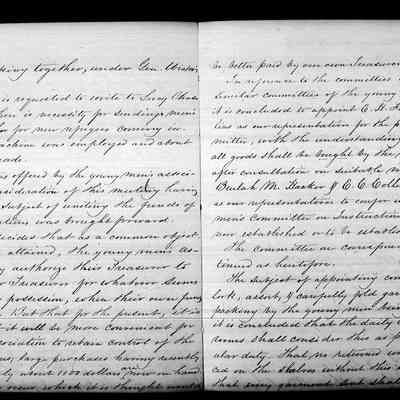 together, under Gen.
is requested to write to Lucy Chase
there is necessity for sending men's
for new refugees coming in.
machine was employed and about
made.
is offered by the young men's associ-
consideration of this meeting having
subject of uniting the funds of
was brought forward.
decides that as a common object
attained, the young men's as-
authorize their Treasurer to
Treasurer for whatever sums
possession, when their own funds
But that for the present, it is
it will be more convenient for
association to retain control of the
large purchases having recently
about 1100 dollars are now on hand
which it is thought would
be better paid by our own Treasurer
In reference to the committees
similar committees of the young
it is concluded to appoint E. H.
as our representation for the
mittee, with the understanding
all goods shall be bought by the
after consultation on suitable
Beulah M. Hacker & E. C. Coll
as our representatives to confer
men's Committee on Instruction
now established or to be establish
The committee on correspon
tinued as heretofore.
The subject of appointing com
look, assort, & carefully fold gar
packing by the young men
it is concluded that the daily
tenees shall consider this as
ular duty. That no returned
ced on the shelves without this
that every garment sent shall